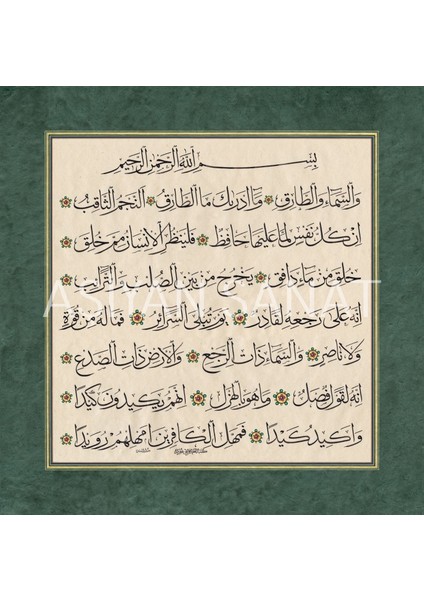 بسم الله الرحمن الرحيم
والسماء والطارق وما ادريك ما الطارق النجم الثاقب
ان كل نفس لما عليها حافظ فلينظر الانسان مم خلق
خلق من ماء دافق يخرج من بين الصلب والترائب
ASİYAN SANAT
انه على رجعه لقادر يوم تبلى السرائر فماله من قوة
ولا ناصر والسماء ذات الرجع والارض ذات الصدع
انه لقول فصل وما هو بالهزل انهم يكيدون كيدا
واكيد كيدا فمهل الكافرين امهلهم رويدا